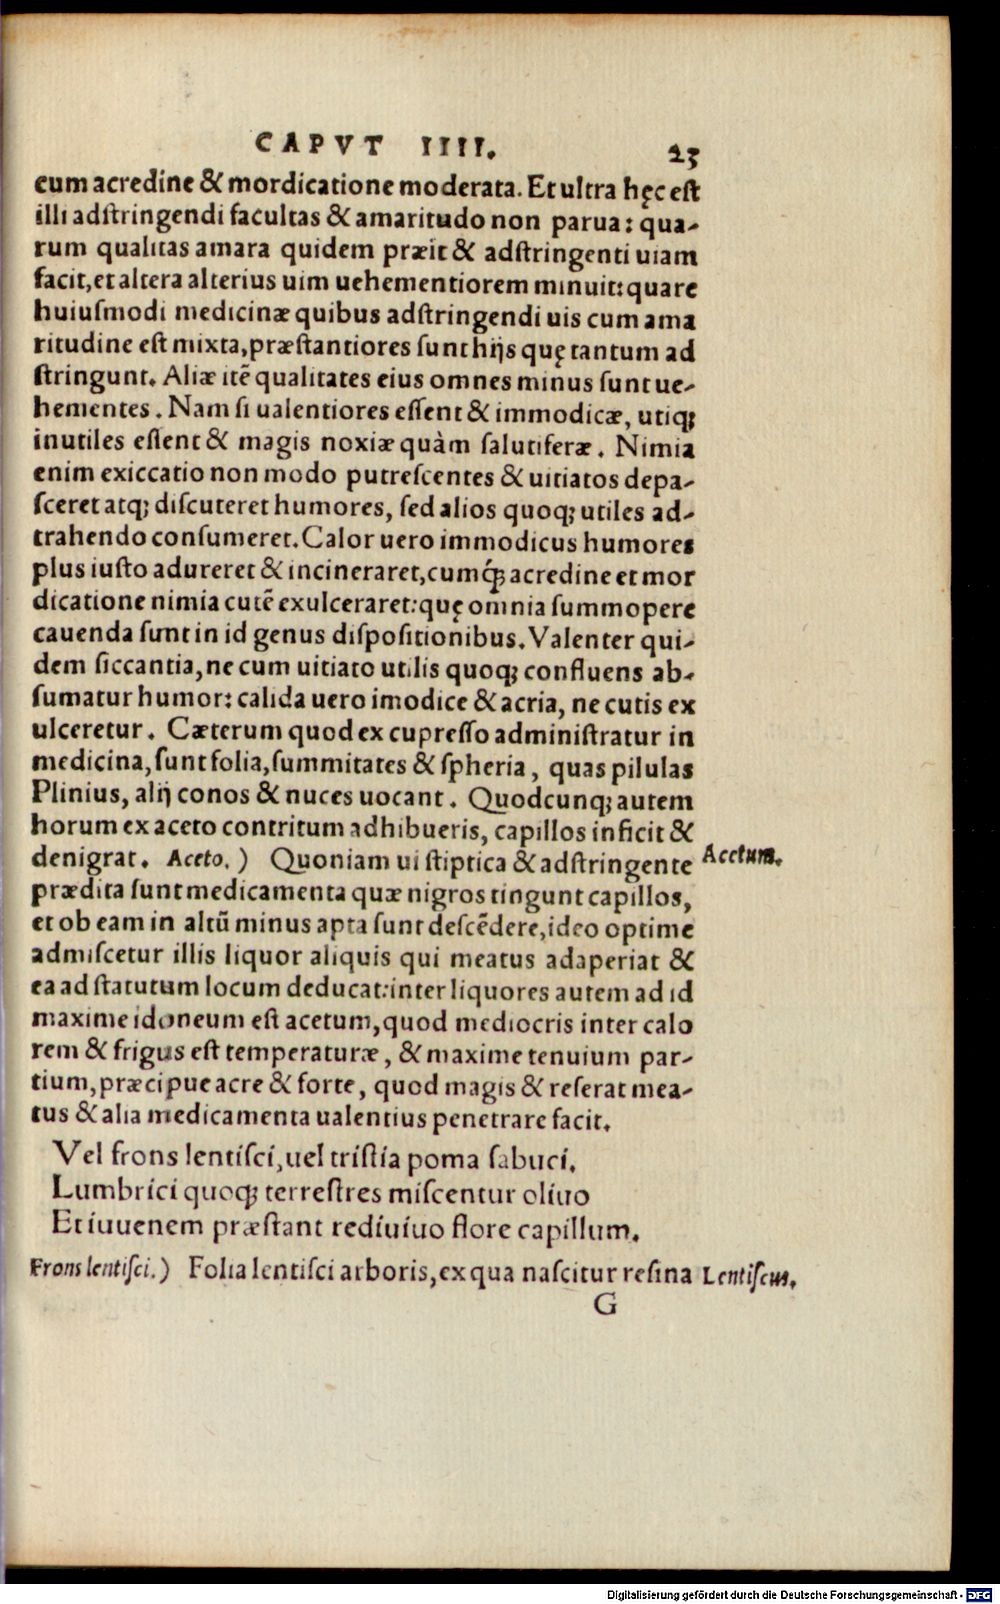 CAPVT IIII. 25
cum acredine & mordicatione moderata. Et ultra hęc est
illi adstringendi facultas & amaritudo non parua: qua-
rum qualitas amara quidem præit & adstringenti uiam
facit, et altera alterius uim uehementiorem minuit: quare
huiusmodi medicinæ quibus adstringendi uis cum ama
ritudine est mixta, præstantiores sunt hijs quę tantum ad
stringunt. Aliæ itẽ qualitates eius omnes minus sunt ue-
hementes. Nam si ualentiores essent & immodicæ, utiq;
inutiles essent & magis noxiæ quàm salutiferæ. Nimia
enim exiccatio non modo putrescentes & uitiatos depa-
sceret atq; discuteret humores, sed alios quoq; utiles ad-
trahendo consumeret. Calor uero immodicus humores
plus iusto adureret & incineraret, cumq́; acredine et mor
dicatione nimia cutẽ exulceraret: quę omnia summopere
cauenda sunt in id genus dispositionibus. Valenter qui-
dem siccantia, ne cum uitiato utilis quoq; confluens ab-
sumatur humor: calida uero imodice & acria, ne cutis ex
ulceretur. Cæterum quod ex cupresso administratur in
medicina, sunt folia, summitates & spheria, quas pilulas
Plinius, alij conos & nuces uocant. Quodcunq; autem
horum ex aceto contritum adhibueris, capillos inficit &
denigrat. Aceto.) Quoniam ui stiptica & adstringente Acetum.
prædita sunt medicamenta quæ nigros tingunt capillos,
et ob eam in altũ minus apta sunt descẽdere, ideo optime
admiscetur illis liquor aliquis qui meatus adaperiat &
ea ad statutum locum deducat: inter liquores autem ad id
maxime idoneum est acetum, quod mediocris inter calo
rem & frigus est temperaturæ, & maxime tenuium par-
tium, præcipue acre & forte, quod magis & reserat mea-
tus & alia medicamenta ualentius penetrare facit.
Vel frons lentisci, uel tristia poma sabuci,
Lumbrici quoq; terrestres miscentur oliuo
Et iuuenem præstant rediuiuo flore capillum.
Frons lentisci.) Folia lentisci arboris, ex qua nascitur resina Lentiscus.
G
Digitalisierung gefördert durch die Deutsche Forschungsgemeinschaft - DFG